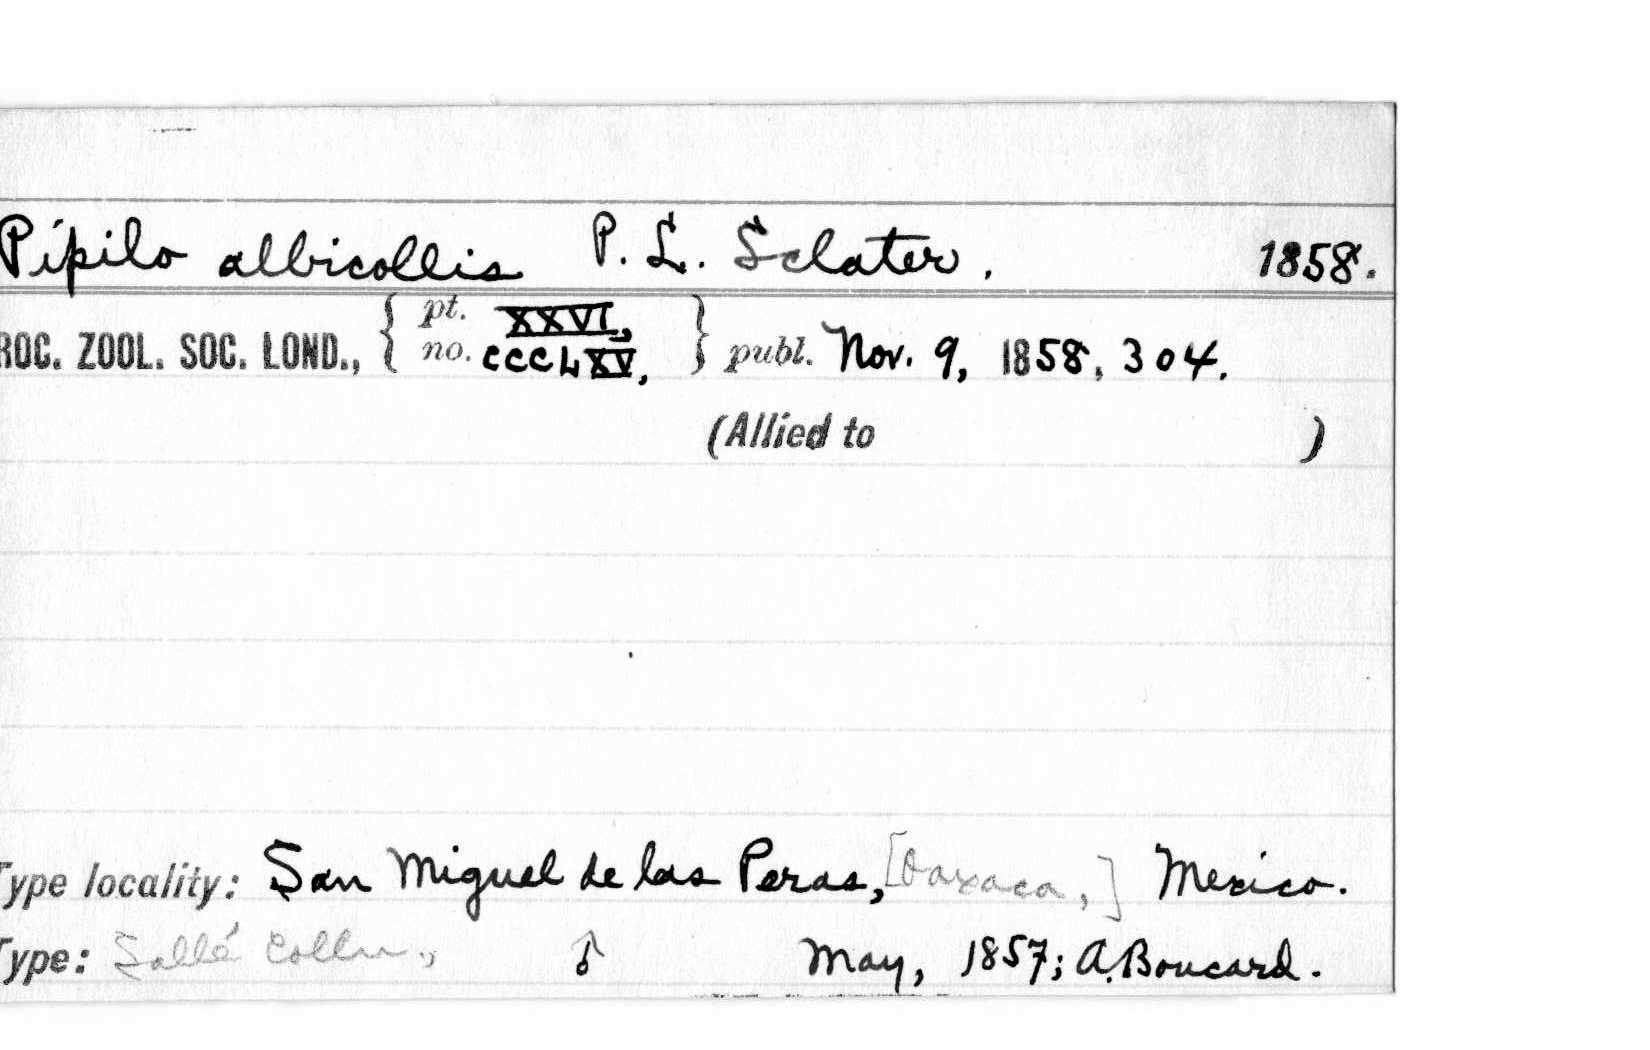 Pipilo albicollis P. L. Sclater. 1858.
ROC. ZOOL. SOC. LOND., { pt. XXVI, no. CCCLXV, } publ. Nov. 9, 1858, 304.
(Allied to )
Type locality: San Miguel de las Peras, [Oaxaca,] Mexico.
Type: Sallé Colln., ♂ May, 1857; A. Boucard.